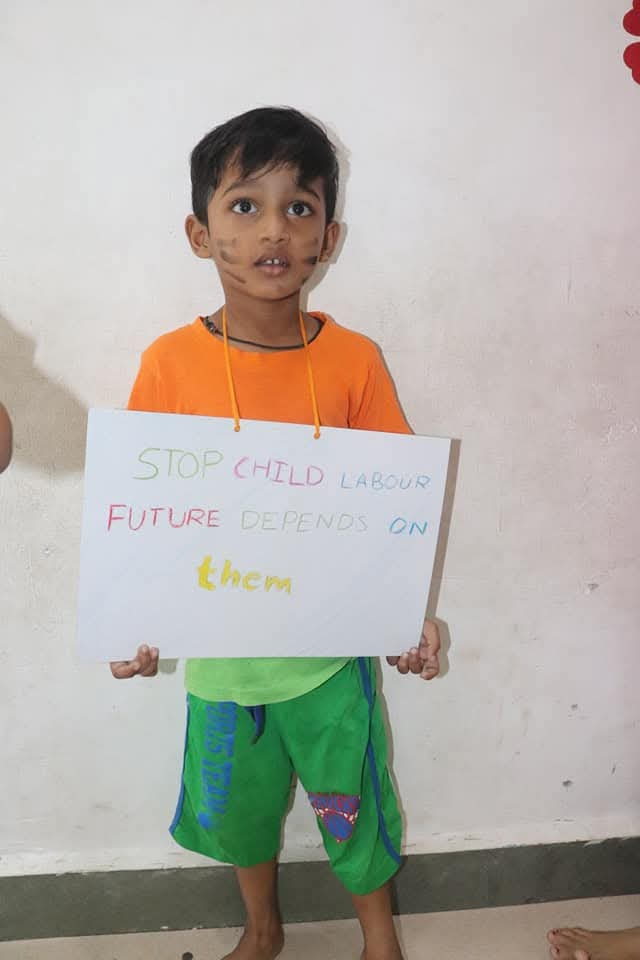 STOP CHILD LABOUR
FUTURE DEPENDS ON
them